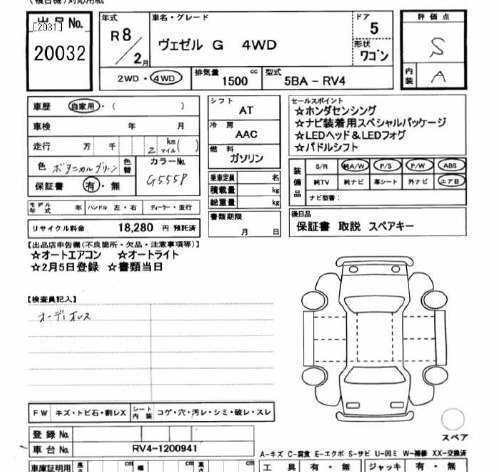 出品No.
[2031]
20032
年式
R8/2月
車名・グレード
ヴェゼル G 4WD
ドア
5
形状
ワゴン
評価点
S
内装
A
2WD・4WD
排気量
1500cc
型式
5BA-RV4
車歴
自家用・( )
車検 年 月
走行 万 千 2 km マイル( )
色 ボタニカルグリーン
色替
カラーNo.
G555P
保証書 有・無
モデル年式 年
ハンドル 左・右
ディーラー・並行
リサイクル料金 18,280 円 預託済
シフト
AT
冷房
AAC
燃料
ガソリン
乗車定員 名
積載量 kg
総重量 kg
書類期限
月 日
セールスポイント
☆ホンダセンシング
☆ナビ装着用スペシャルパッケージ
☆LEDヘッド&LEDフォグ
☆パドルシフト
装備品
S/R 純A/W P/S P/W ABS
純TV 純ナビ 革シート 外ナビ エアB
ナビ型番:
後日品
保証書 取説 スペアキー
【出品店申告欄(不良箇所・欠品・注意事項等)】
☆オートエアコン ☆オートライト
☆2月5日登録 ☆書類当日
【検査員記入】
オーディオレス
FW キズ・トビ石・割レX
シート内装 コゲ・穴・汚レ・シミ・破レ・スレ
登録No.
車台No. RV4-1200941
スペア
A-キズ C-腐食 E-エクボ S-サビ U-凹ミ W-補修 XX-交換済
車庫証明用 cm cm cm
工具 有・無
ジャッキ 有・無